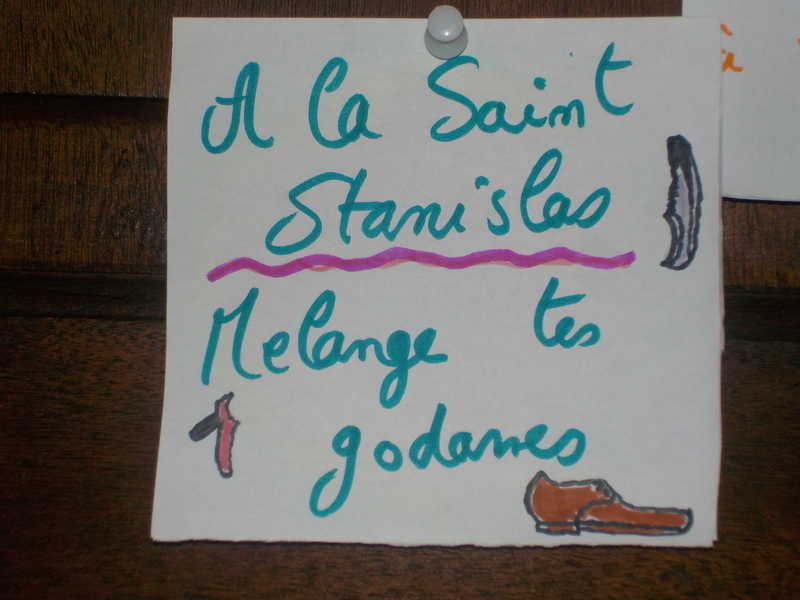 A la Saint
Stanislas
Melange tes
godasses
à